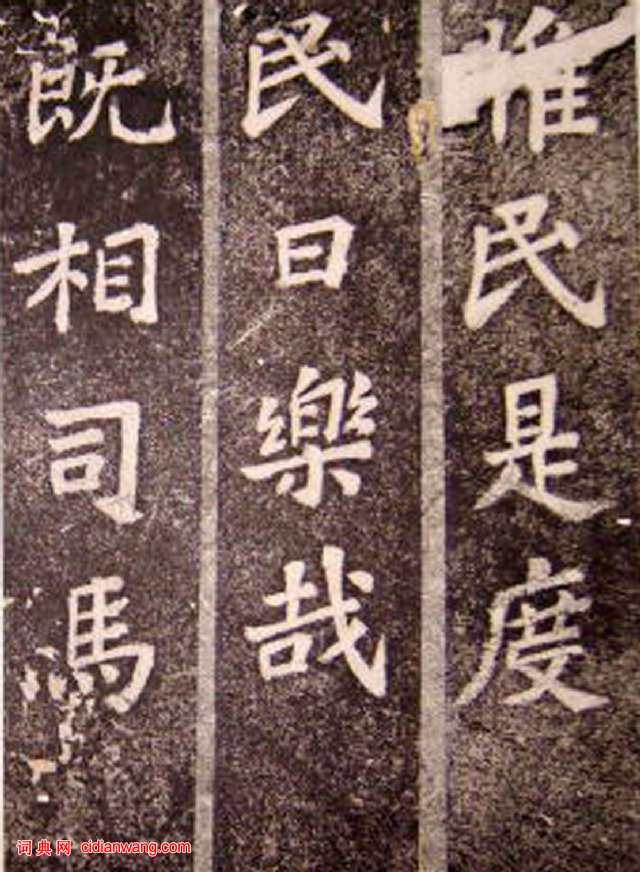 惟民是度
民曰樂哉
既相司馬
词典网 cidianwang.com